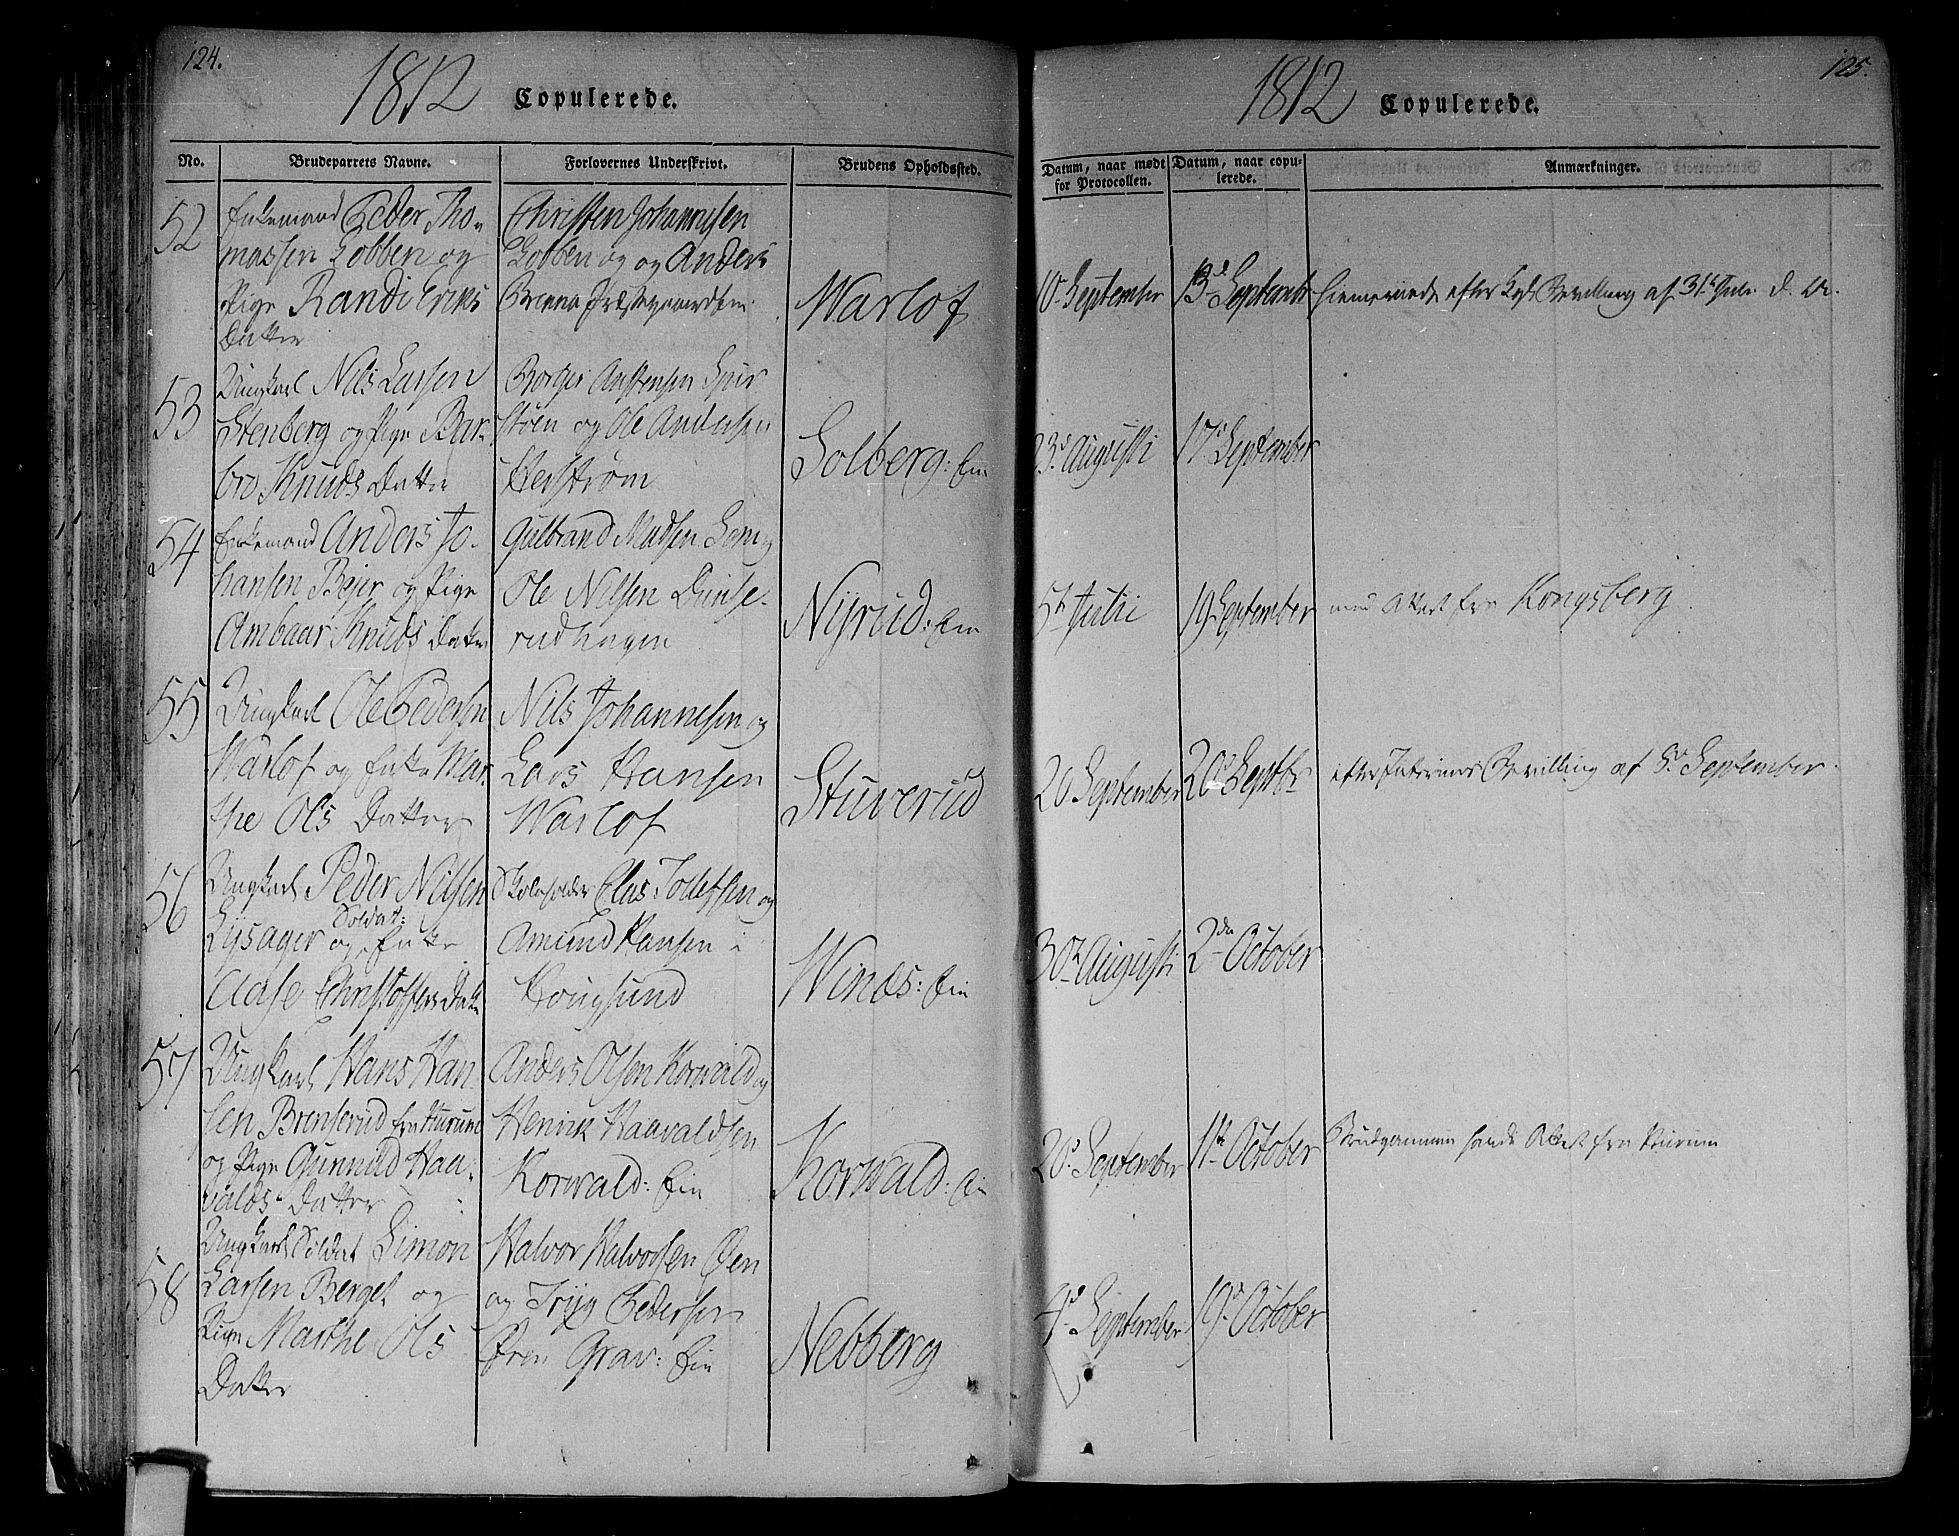 124.
1812 Copulerede.
No. Brudeparrets Navne. Forlovernes Underskrivt. Brudens Opholdssted.
52
Enkemand Peder Tho-
massen Lobben og
Pige Randi Eriks
Datter
Christen Johannesen
Lobben og og Anders
Warlof
53
Ungkarl Nils Larsen
Stenberg og Pige Bar-
bro Knuds Datter
Anstensen
og Ole Andersen
Herstrøm
Solberg: Ein
54
Enkemand Anders Jo-
hansen Bejer og Pige
Ambaar Knuds Datter
Gulbrand Madsen
Ole Nilsen
Nyrud: Ein
55
Ungkarl Ole Pedersen
Warlof og Enke Mar-
the Ols Datter
Nils Johannesen og
Lars Hansen
Warlof
Stuverud
56
Ungkarl Peder Nilsen
Soldat:
Lysager og Enke
Aase Christoffers Datter
Skoleholder Elias og
Amund Hansen i
Hougsund
Winds: Ein
57
Ungkarl Hans Han-
sen Brenserud fra Hurum
og Pige Gunnild Haa-
valds Datter
Anders Olsen Korwald og
Henrik Haavaldsen
Korwald: Ein
Korwald: Ein
58
Ungkarl Soldat Simon
Larsen Berget og
Pige Marthe Ols
Datter
Halvor Halvorsen Øen
og Tryg Pedersen
Grav: Ein
Nebberg
125.
1812 Copulerede.
Datum, naar mødt for Protocollen. Datum, naar copulerede. Anmærkninger.
10. September 13d. September efter Kgl. Bevilling af 31te Juli d. A.
23d. Augusti 17d. September
5te Julii 19. September med Attest fra Kongsberg
20 September 20d. Septbr efter Interims Bevilling af 5d. September.
30te Augusti 2den October
20d. September 11te October Brudgommen havde Attest fra Hurum
4d. September 19d. October